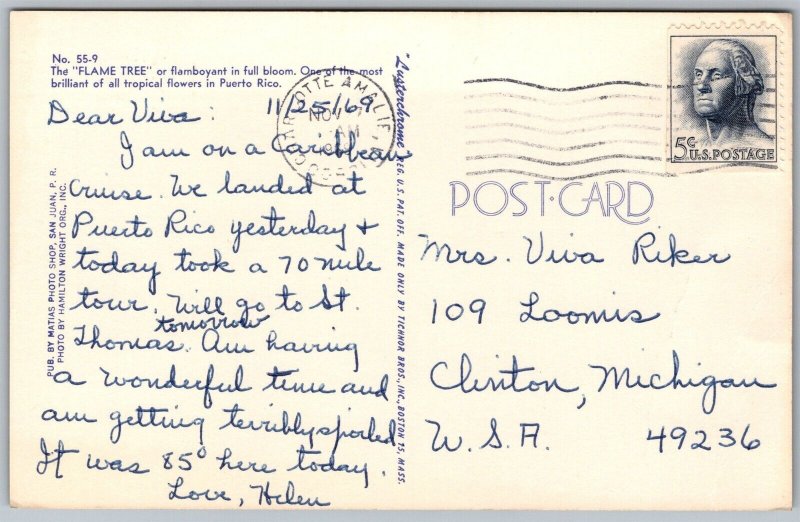 No. 55-9
The "FLAME TREE" or flamboyant in full bloom. One of the most
brilliant of all tropical flowers in Puerto Rico.
11/25/69
Dear Viva:
I am on a Caribbean
Cruise. We landed at
Puerto Rico yesterday +
today took a 70 mile
tour. Will go to St.
Thomas tomorrow. Am having
a wonderful time and
am getting terribly spoiled.
It was 85° here today.
Love, Helen
PUB. BY MATIAS PHOTO SHOP, SAN JUAN, P. R.
PHOTO BY HAMILTON WRIGHT ORG., INC.
"Lusterchrome" REG. U.S. PAT. OFF. MADE ONLY BY TICHNOR BROS., INC., BOSTON 15, MASS.
CHARLOTTE AMALIE
NOV
AM
5¢ U.S. POSTAGE
POST-CARD
Mrs. Viva Riker
109 Loomis
Clinton, Michigan
U.S.A. 49236